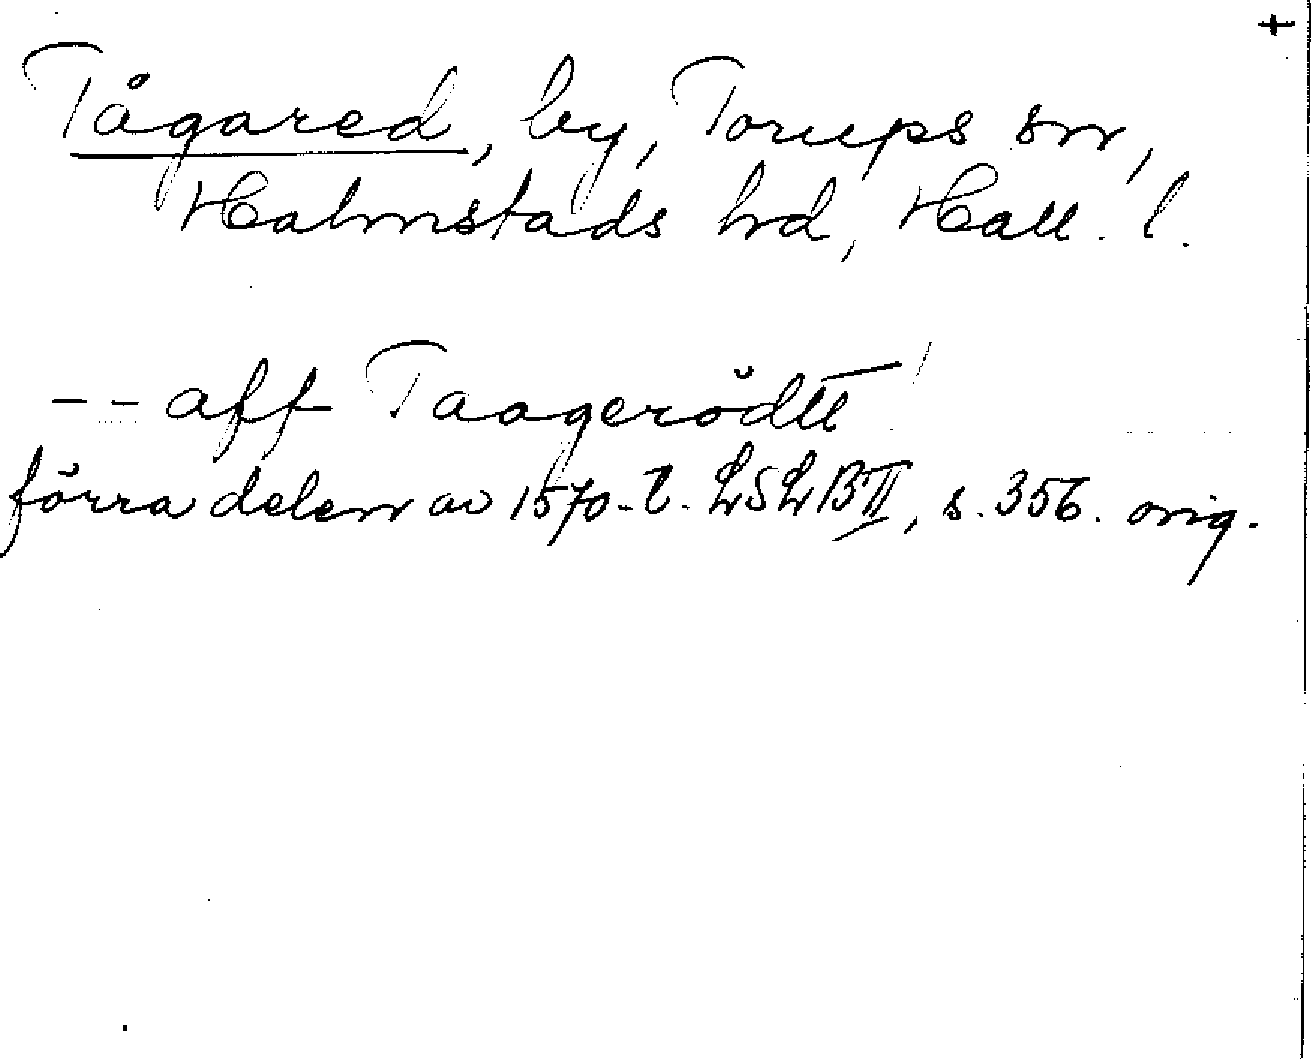 +
Tågared, by, Torups sn,
Halmstads hd, Hall. l.
-- aff Taagerödtt
förra delen av 1570-t. LSLB II, s. 356. orig.